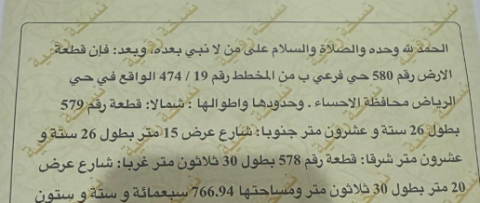 الحمد لله وحده والصلاة والسلام على من لا نبي بعده، وبعد: فإن قطعة
الارض رقم 580 حي فرعي ب من المخطط رقم 19 / 474 الواقع في حي
الرياض محافظة الاحساء . وحدودها واطوالها : شمالا: قطعة رقم 579
بطول 26 ستة و عشرون متر جنوبا: شارع عرض 15 متر بطول 26 ستة و
عشرون متر شرقا: قطعة رقم 578 بطول 30 ثلاثون متر غربا: شارع عرض
20 متر بطول 30 ثلاثون متر ومساحتها 766.94 سبعمائة و ستة و ستون